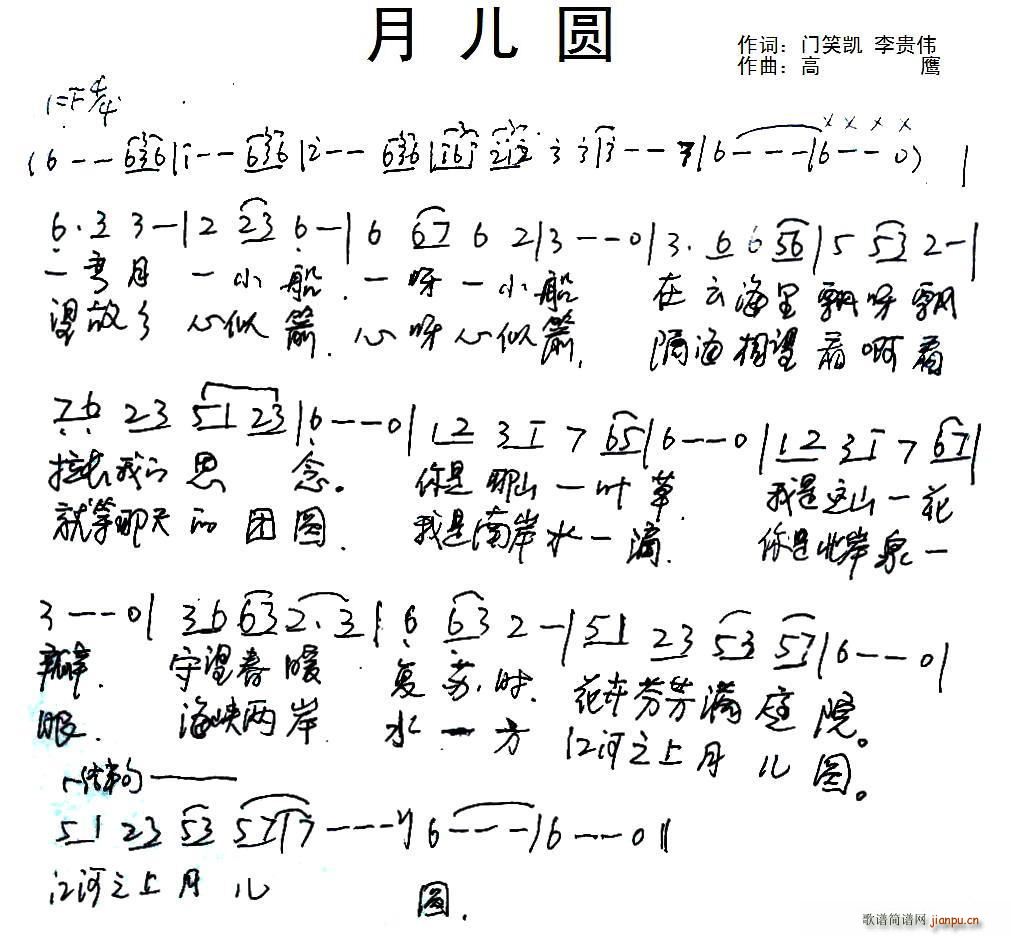 月 儿 圆
作词：门笑凯 李贵伟
作曲：高 鹰
1=F 4/4
(6 - - 636|i - - 636|2 - - 636|i6i 2i2 3 3|3 - - 7|6 - - - |6 - - 0) |
6. 3 3 - | 2 23 6 - | 6 67 6 2|3 - - - 0|3. 6 6 56|5 53 2 - |
一弯月 一小船. 一呀一小船 在云海里飘呀飘
望故乡 心似箭. 心呀心似箭. 隔海相望看啊看
76 23 51 23|6 - - - 0| 12 3i 7 65|6 - - - 0|12 3i 7 67|
拉长我的思 念。 你是那山一叶草. 我是这山一花
就等那天的团圆. 我是南岸水一滴. 你是北岸泉一
3 - - - 0| 36 63 2. 3| 6 63 2 - |51 23 53 57|6 - - - 0|
瓣. 守望春暖 复苏时. 花卉芬芳满庭院。
眼. 海峡两岸 水一方 江河之上月儿圆。
结束句
51 23 53 57|7 - - - -|6 - - - |6 - - - 0||
江河之上月儿 圆.
歌谱简谱网 jianpu.cn